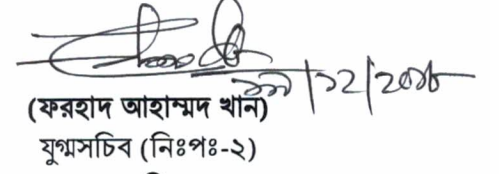 ১৯/১২/২০১৮
(ফরহাদ আহাম্মদ খান)
যুগ্মসচিব (নিঃপঃ-২)